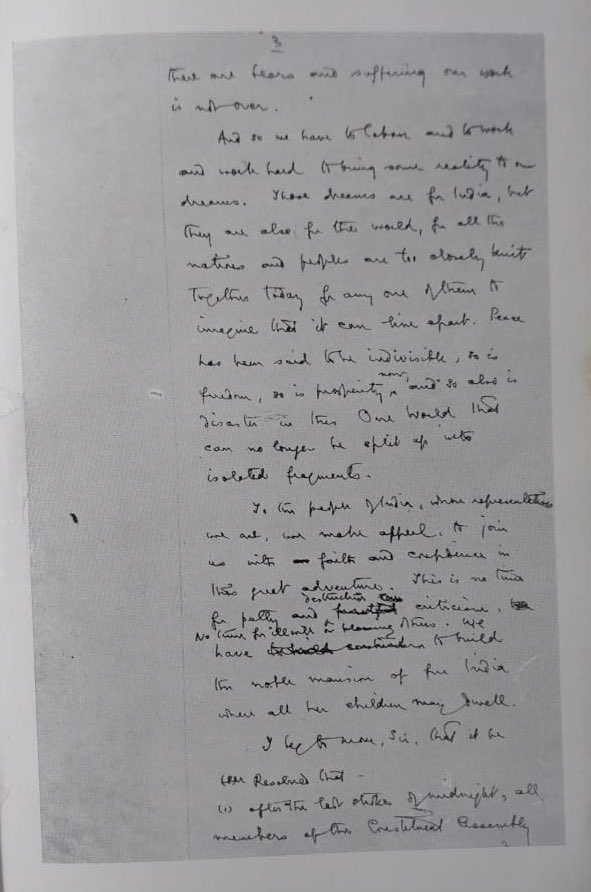 3
there are tears and suffering our work
is not over.
And so we have to labour and to work
and work hard to bring some reality to our
dreams. Those dreams are for India, but
they are also for the world, for all the
nations and peoples are too closely knit
together today for any one of them to
imagine that it can live apart. Peace
has been said to be indivisible, so is
now,
freedom, so is prosperity and so also is
disaster in this One World that
can no longer be split up into
isolated fragments.
To the people of India, whose representatives
we are, we make appeal to join
us with faith and confidence in
this great adventure. This is no time
destructive
for petty and criticism,
No time for illwill or blaming others. We
have to build
the noble mansion of free India
where all her children may dwell.
I beg to move, Sir, that it be
Resolved that -
(1) after the last stroke of midnight, all
members of the Constituent Assembly